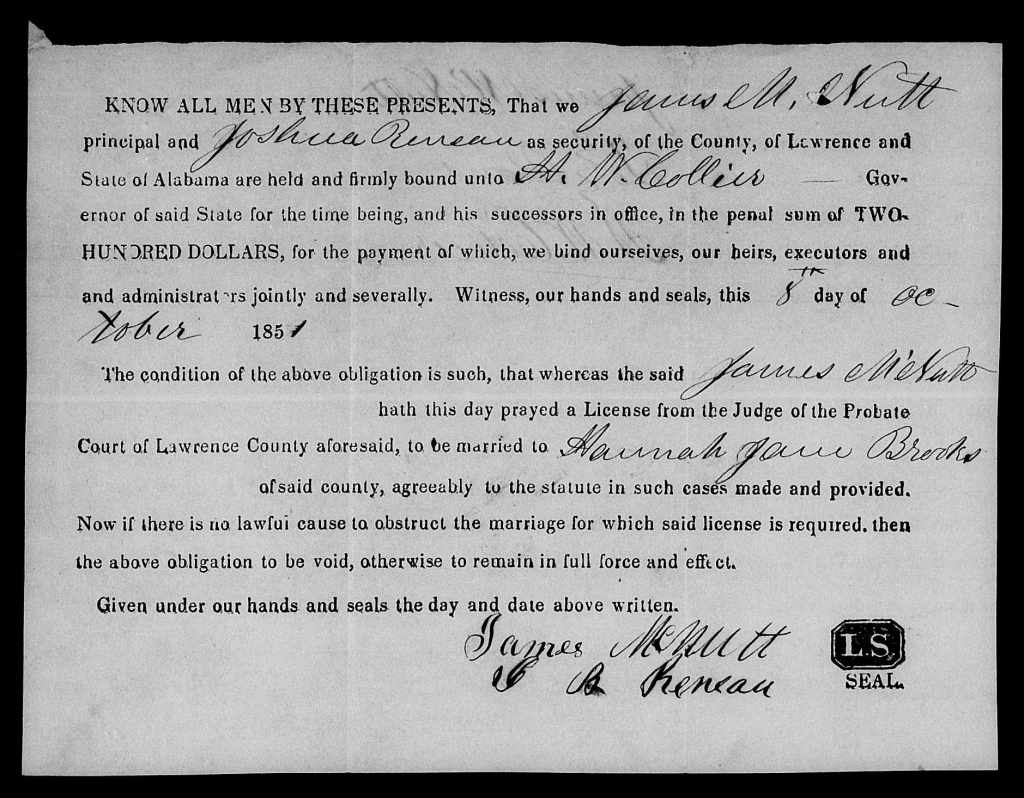 KNOW ALL MEN BY THESE PRESENTS, That we James M. Nutt
principal and Joshua Reneau as security, of the County, of Lawrence and
State of Alabama are held and firmly bound unto H. W. Collier — Gov-
ernor of said State for the time being, and his successors in office, in the penal sum of TWO-
HUNDRED DOLLARS, for the payment of which, we bind ourselves, our heirs, executors and
and administrators jointly and severally. Witness, our hands and seals, this 8th day of Oc-
tober 1851
The condition of the above obligation is such, that whereas the said James McNutt
hath this day prayed a License from the Judge of the Probate
Court of Lawrence County aforesaid, to be married to Hannah Jane Brooks
of said county, agreeably to the statute in such cases made and provided.
Now if there is no lawful cause to obstruct the marriage for which said license is required, then
the above obligation to be void, otherwise to remain in full force and effect.
Given under our hands and seals the day and date above written.
James McNutt
B Reneau
L.S.
SEAL.